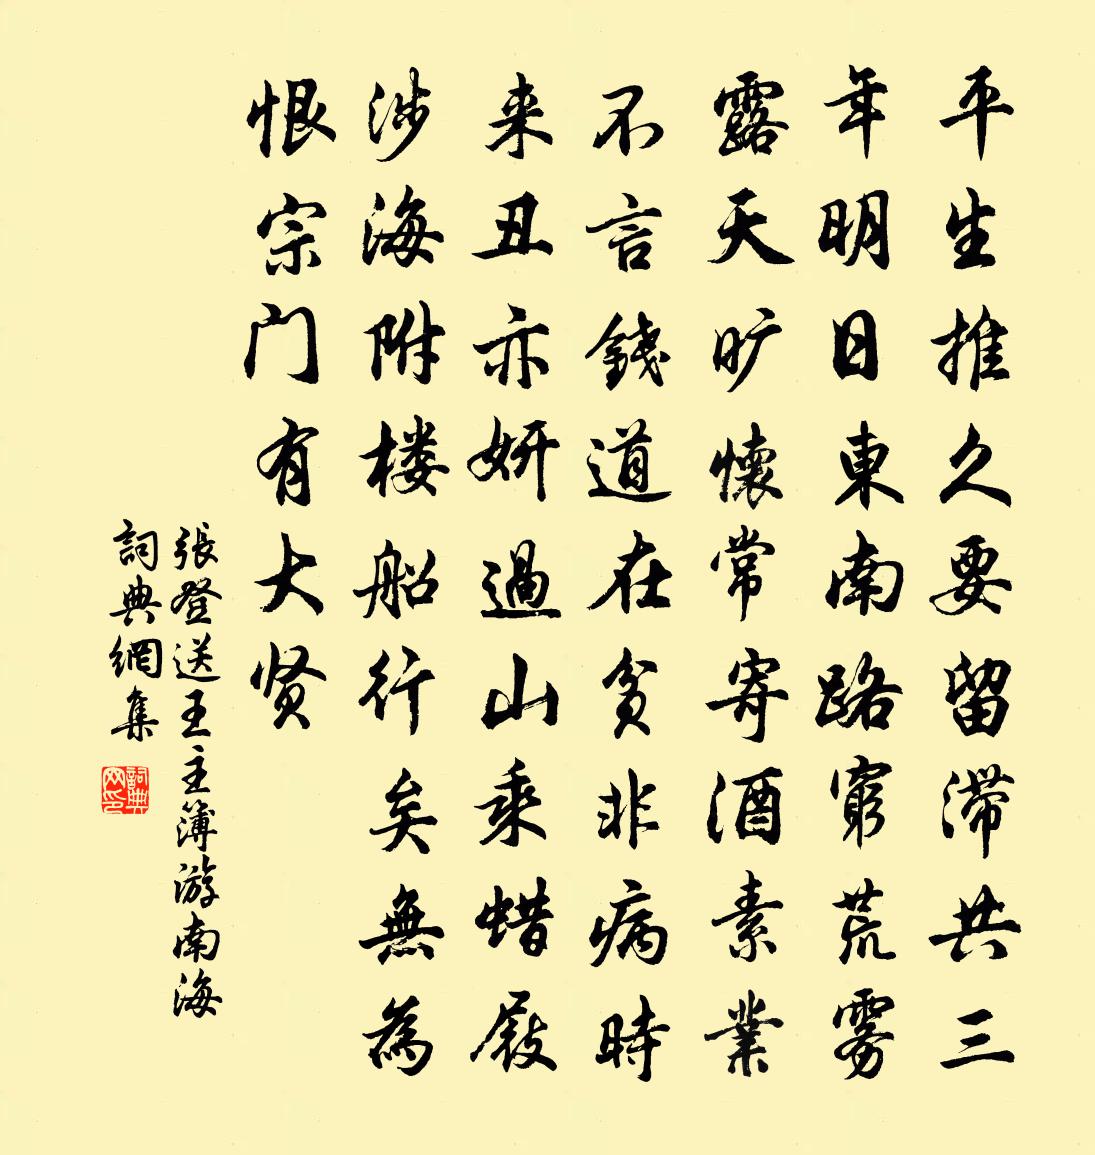 平生推久要留滞共三
年明日東南路窮荒雾
露天旷懷常寄酒素業
不言錢道在貧非病時
来丑亦妍過山乘蜡屐
涉海附楼船行矣無為
恨宗门有大贤
張登送王主簿游南海
詞典網集
詞典网印